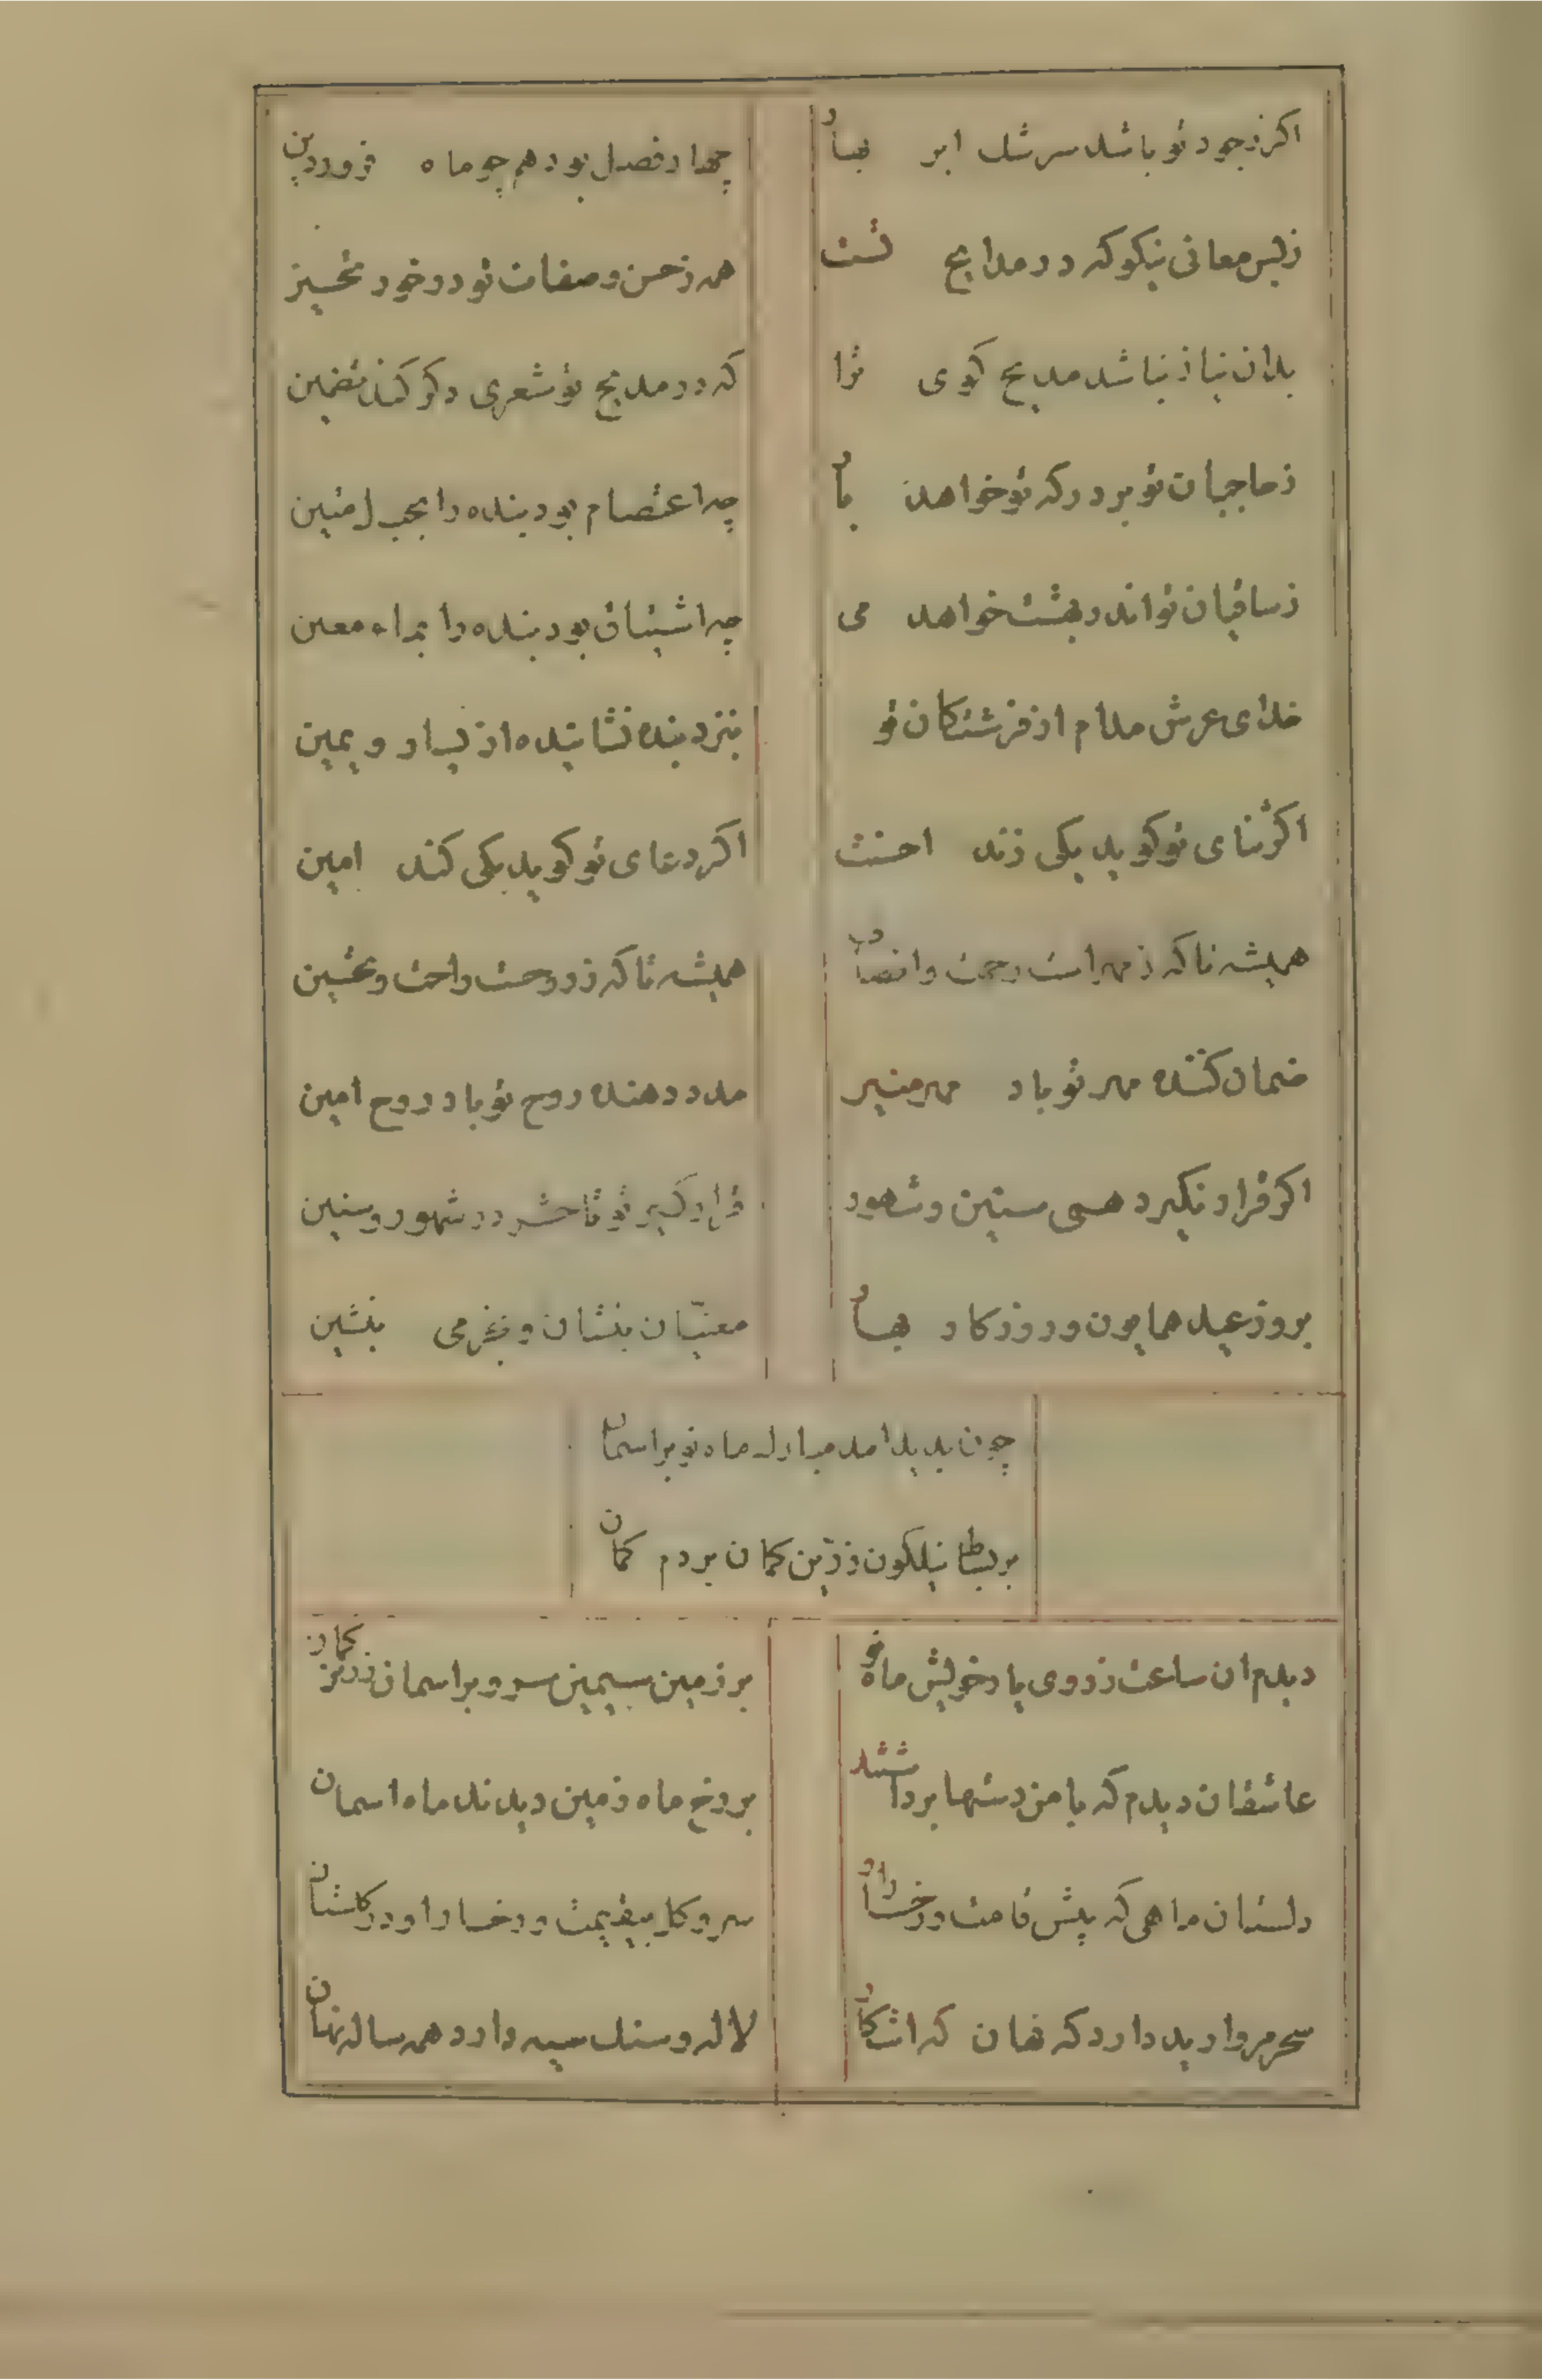 اکر زجود تو باشد سرشک ابر بهار
چهار فصل بود هم چو ماه فروردین
زبس معانی نیکو که در مدایح تست
همه زحسن و صفات تو در خور تحسین
بدان نیاز نباشد مدیح کوی ترا
که در مدیح تو شعری دکر کند تضمین
زحاجبان تو بر درکه تو خواهد بار
چه اعتصام بود بنده را بحبل متین
زساقیان تو اندر بهشت خواهد می
چه اشتیاق بود بنده را بماء معین
خدای عرش مدام از فرشتکان تو
بنزد بنده نشانیده از یسار و یمین
اکر ثنای تو کوید یکی زند احسنت
اکر دعای تو کوید یکی کند امین
همیشه تا که زمهر است رحمت و انصاف
همیشه تا که زروحست راحت و تحسین
ضمان کننده مهر تو باد مهر منیر
مدد دهنده روح تو باد روح امین
اکر قرار نکیرد همی سنین و شهور
قرار کیر تو تا حشر در شهور و سنین
بروز عید همایون و روزکار بهار
مغنیان بنشان و بخرمی بنشین
چون پدید امد مبارک ماه نو بر اسمان
بر بساط نیلکون زرین کمان بردم کمان
دیدم ان ساعت زروی یار خویش ماه نو
بر زمین سیمین سرو بر اسمان زرین کمان
عاشقان دیدم که با من دستها برداشتند
بر رخ ماه زمین دیدند ماه اسمان
دلستان ماهی که پیش قامت و رخسار او
سرو کل بیقیمت و رخسار او در کلستان
سحر مروارید دارد که نهان که اشکار
لاله و سنک سیه دارد همه ساله نهان